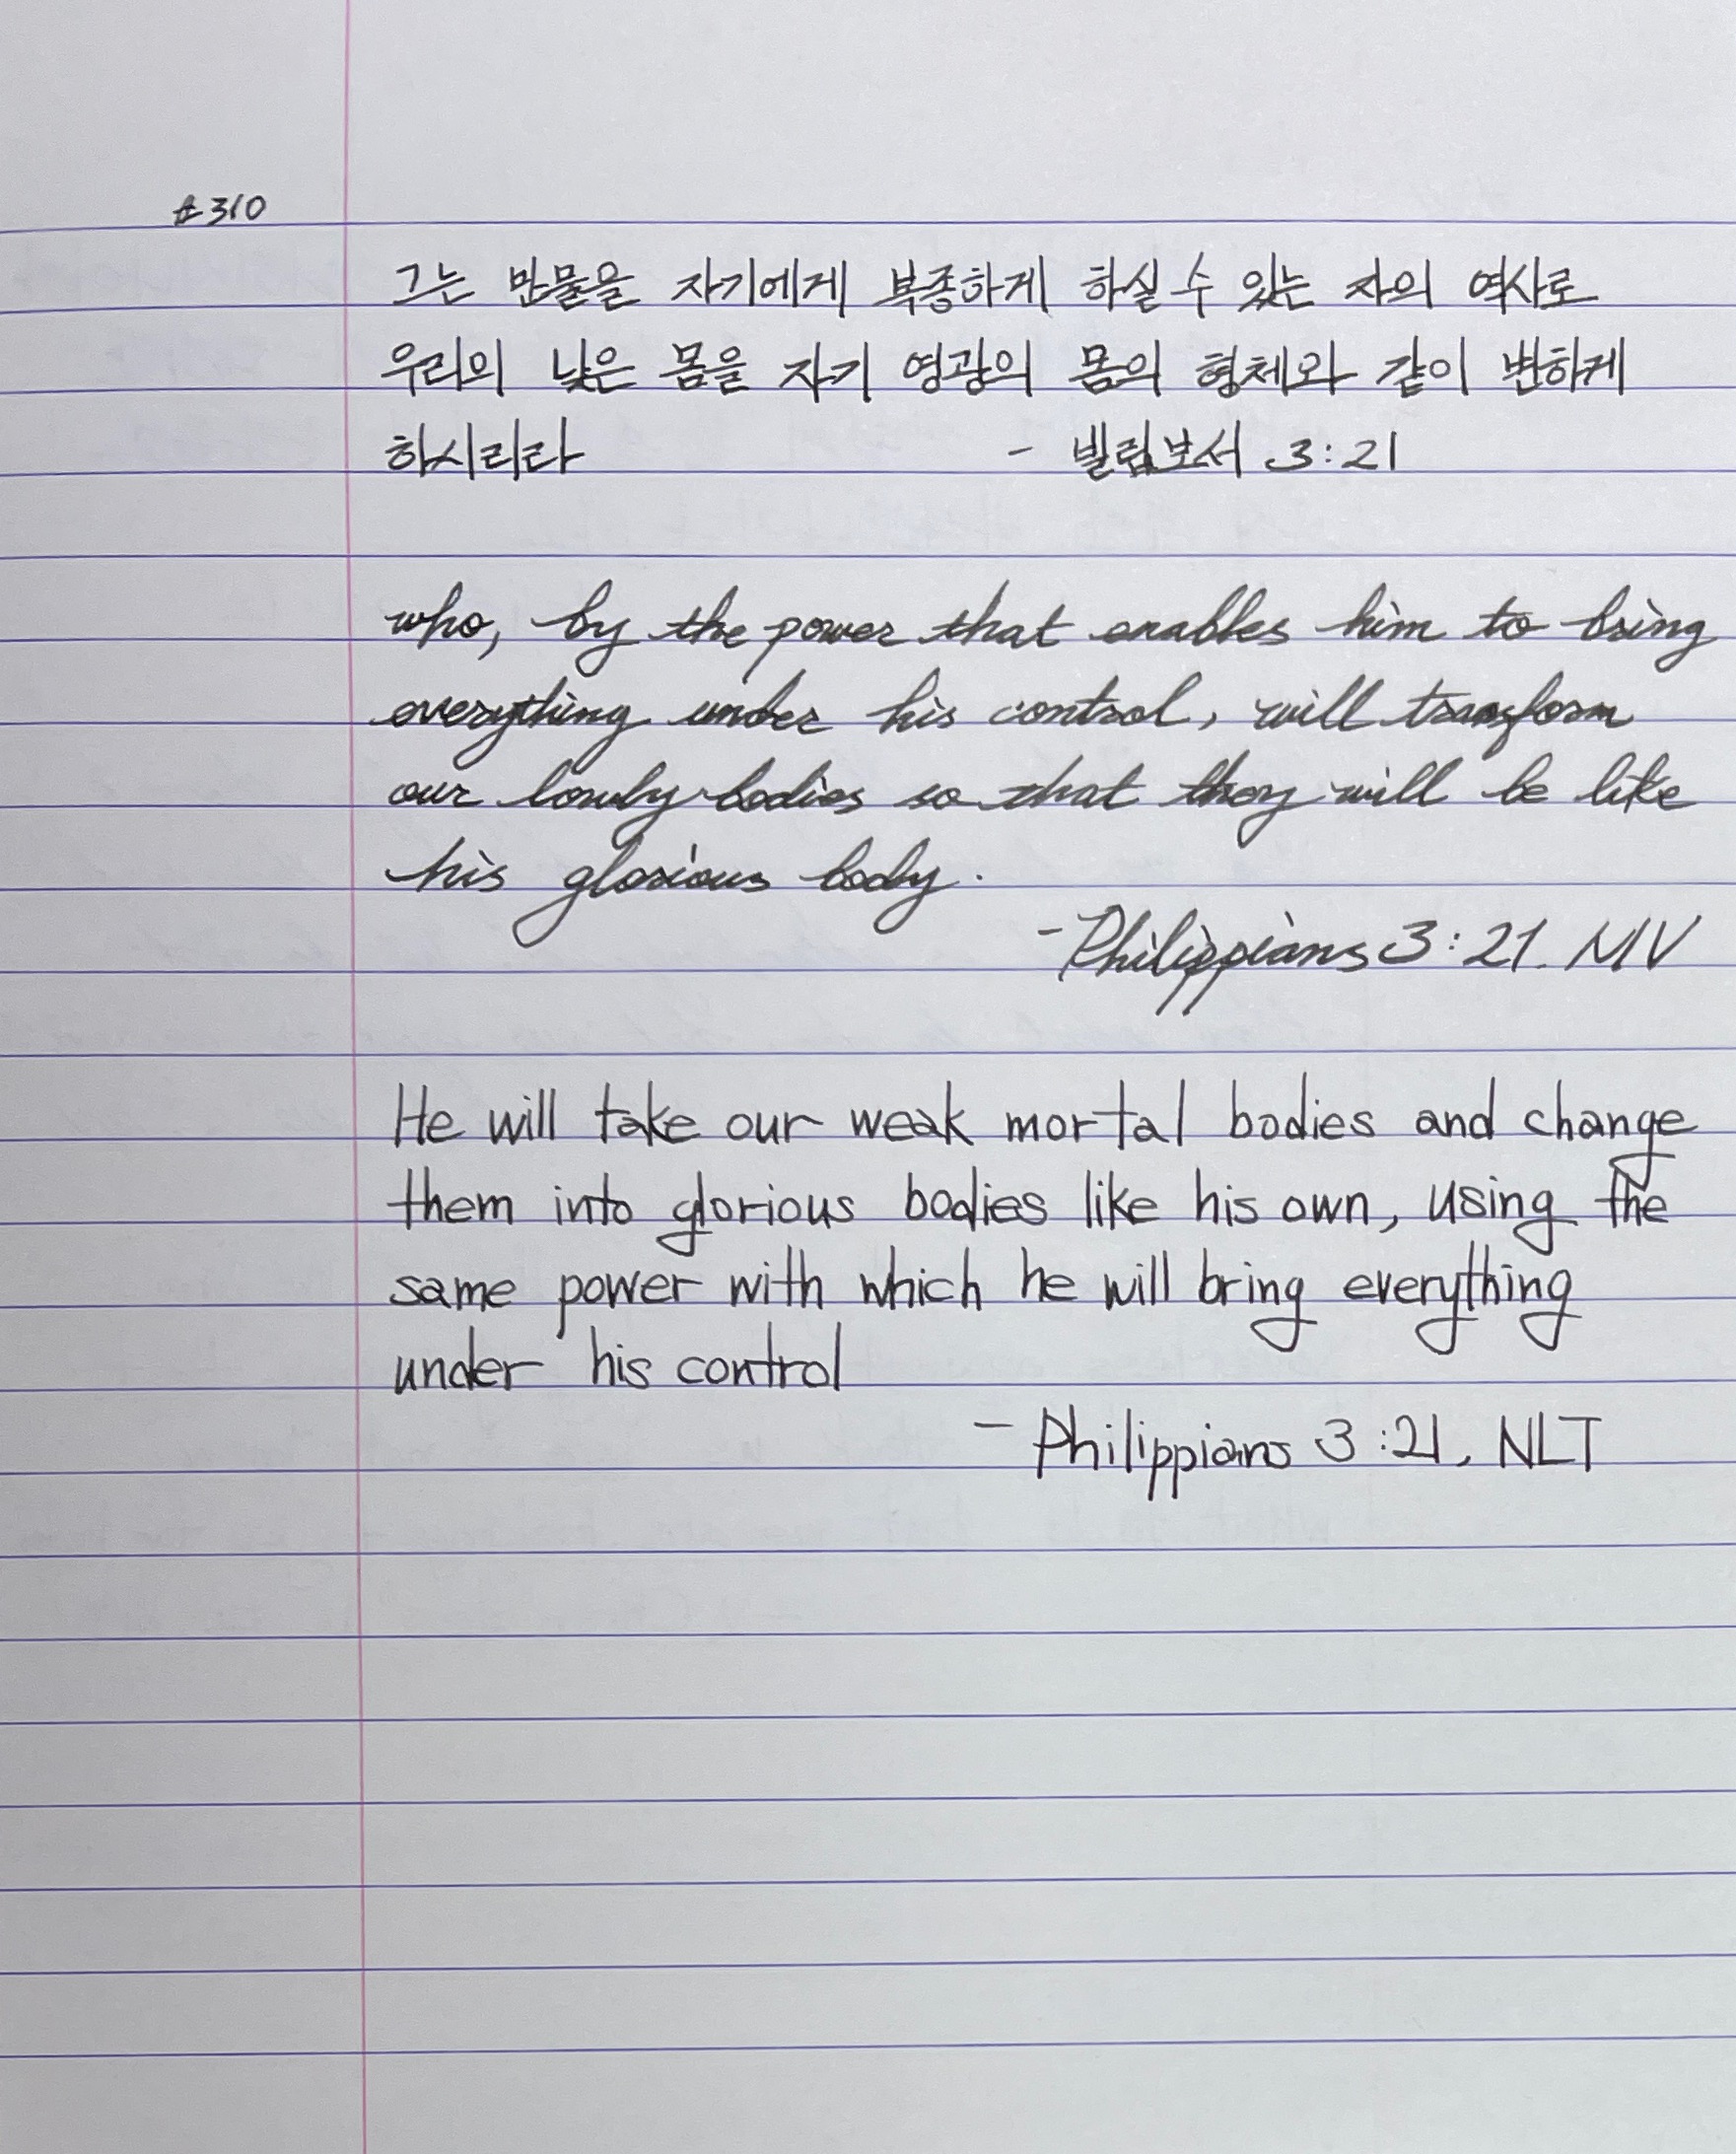 #310
그는 만물을 자기에게 복종하게 하실 수 있는 자의 역사로
우리의 낮은 몸을 자기 영광의 몸의 형체와 같이 변하게
하시리라 - 빌립보서 3:21
who, by the power that enables him to bring
everything under his control, will transform
our lowly bodies so that they will be like
his glorious body.
- Philippians 3:21. NIV
He will take our weak mortal bodies and change
them into glorious bodies like his own, using the
same power with which he will bring everything
under his control
- Philippians 3:21, NLT